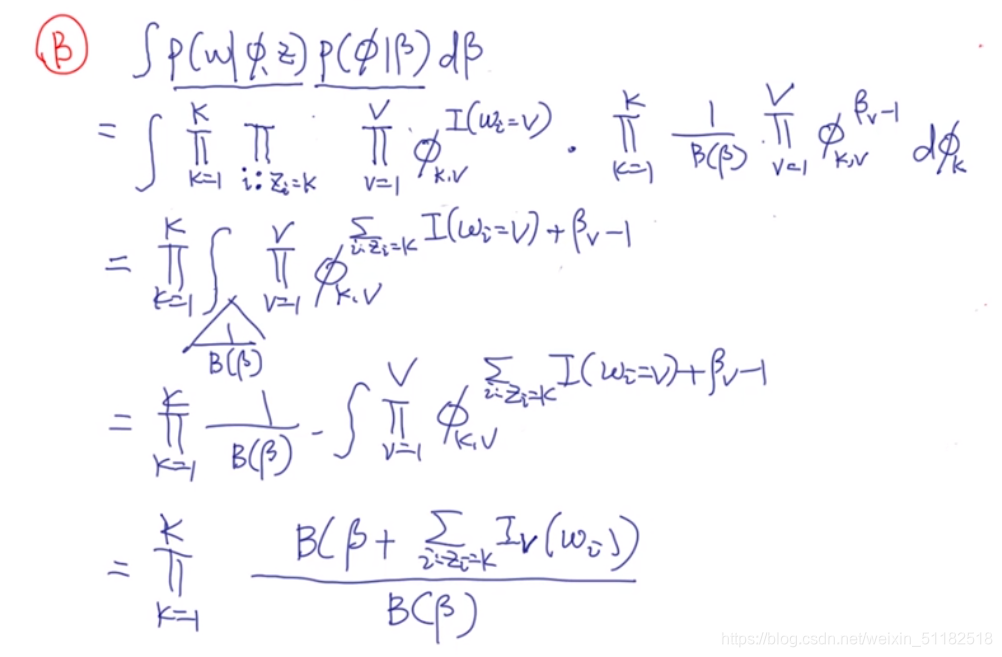 Ⓑ ∫ P(w|φ,z) P(φ|β) dβ
= ∫ ∏_{k=1}^{K} ∏_{i:z_i=k} ∏_{v=1}^{V} φ_{k,v}^{I(w_i=v)} · ∏_{k=1}^{K} 1/B(β) ∏_{v=1}^{V} φ_{k,v}^{β_v-1} dφ_k
= ∏_{k=1}^{K} ∫ ∏_{v=1}^{V} φ_{k,v}^{∑_{i:z_i=k} I(w_i=v)+β_v-1}
1/B(β)
= ∏_{k=1}^{K} 1/B(β) - ∫ ∏_{v=1}^{V} φ_{k,v}^{∑_{i:z_i=k} I(w_i=v)+β_v-1}
= ∏_{k=1}^{K} B(β+∑_{i:z_i=k} I_v(w_i))/B(β)
https://blog.csdn.net/weixin_51182518